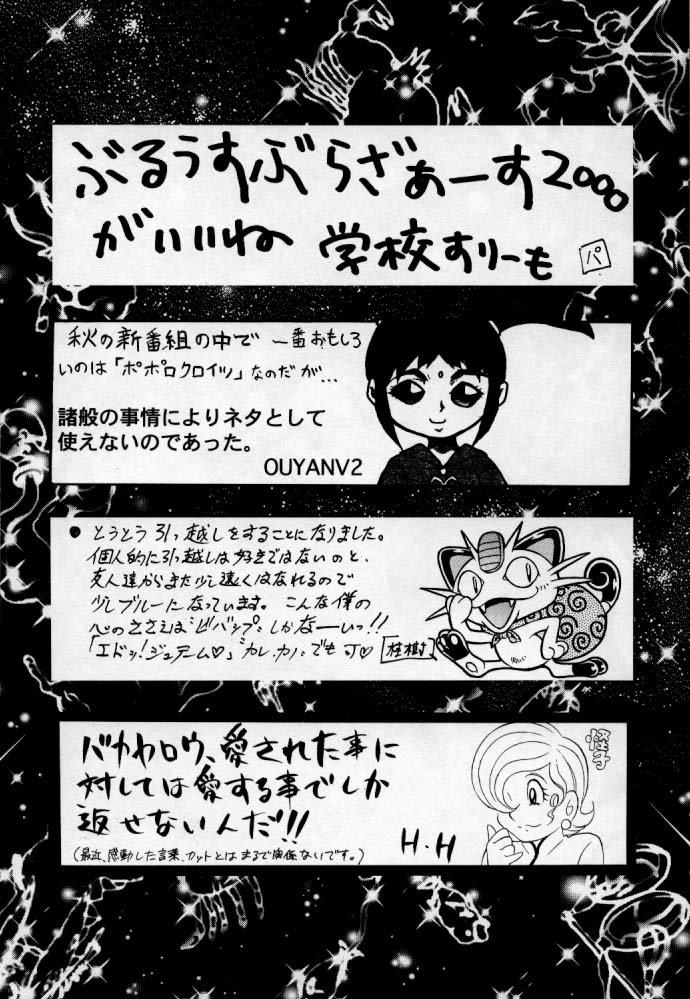 ぶるうすぶらざぁーす2000
がいいね 学校すりーも パ
秋の新番組の中で 一番おもしろ
いのは「ポポロクロイツ」なのだが…
諸般の事情によりネタとして
使えないのであった。
OUYANV2
● とうとう引っ越しをすることになりました。
個人的に引っ越しは好きではないのと、
友人達からまた少し遠くはなれるので
少しブルーになっています。こんな僕の
心のささえは"ビバップ"しかなーいっ!!
「エドッ!ジュテーム♡」"カレ.カノ"でも可♡ 桂樹
バカヤロウ、愛された事に
対しては愛する事でしか
返せないんだ!!
H.H
(最近、感動した言葉、カットとは まるで関係ないです。)
怪子